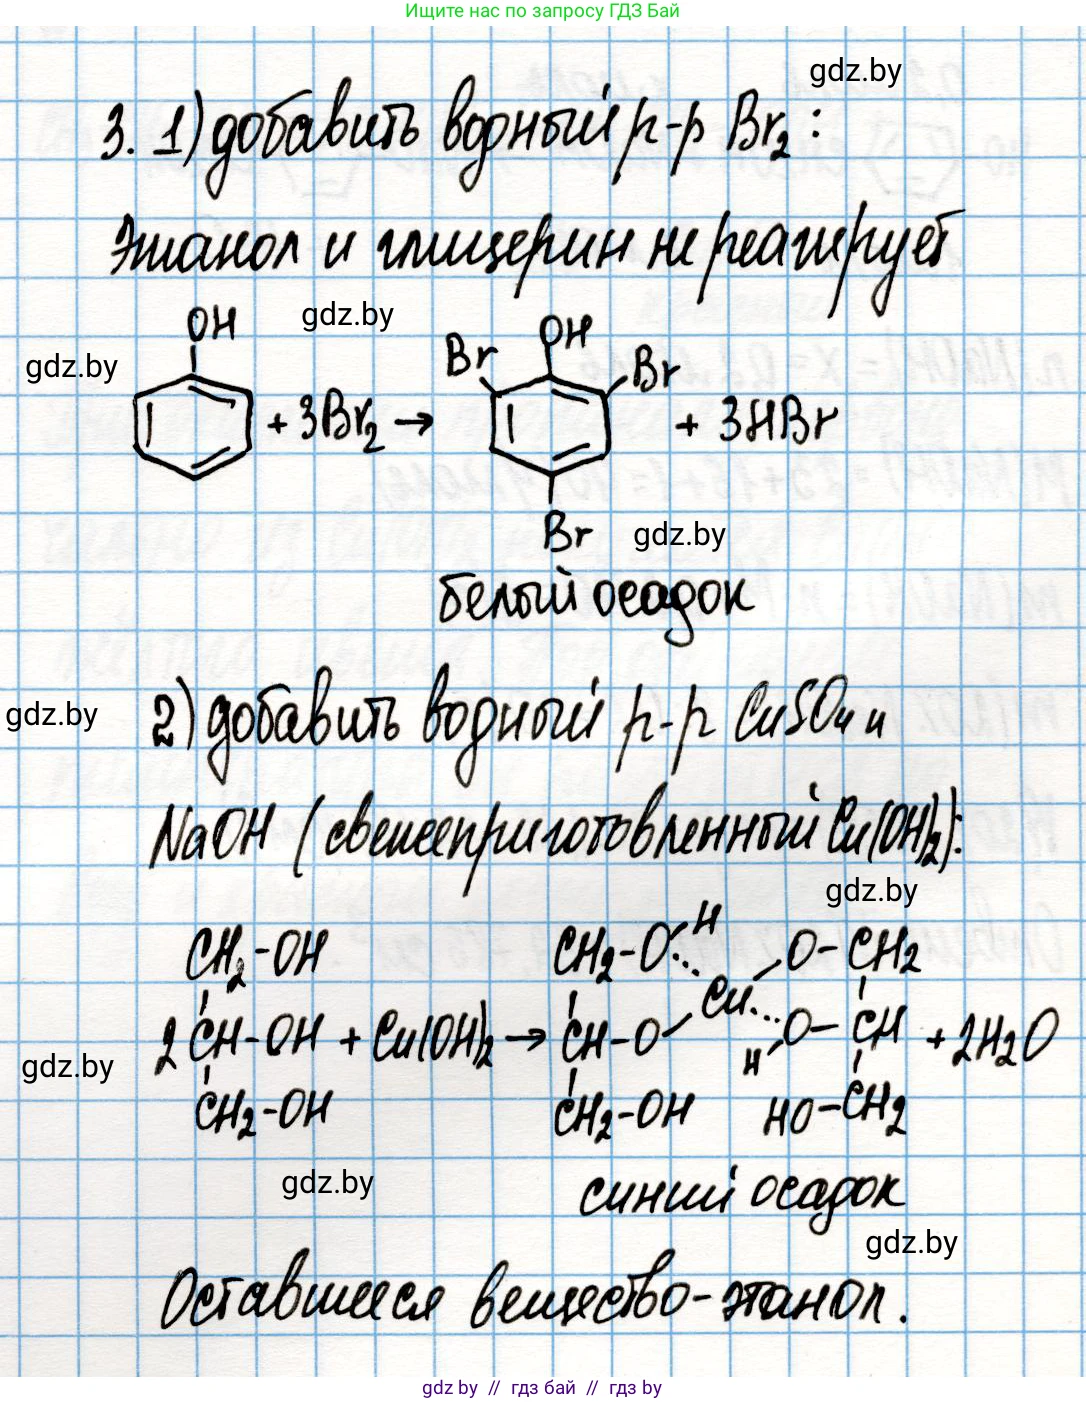 Ищите нас по запросу ГДЗ Бай
gdz.by
3. 1) добавить водный р-р Br2:
Этанол и глицерин не реагирует
gdz.by
gdz.by
OH
OH
Br
Br
+ 3Br2 → + 3HBr
Br
gdz.by
белый осадок
gdz.by
2) добавить водный р-р CuSO4 и
NaOH (свежеприготовленный Cu(OH)2):
gdz.by
CH2-OH CH2-O H O-CH2
2 CH-OH + Cu(OH)2 → CH-O Cu O-CH + 2H2O
H
CH2-OH CH2-OH HO-CH2
gdz.by
gdz.by
синий осадок
gdz.by
Оставшееся вещество-этанол.
gdz by // гдз бай // gdz by